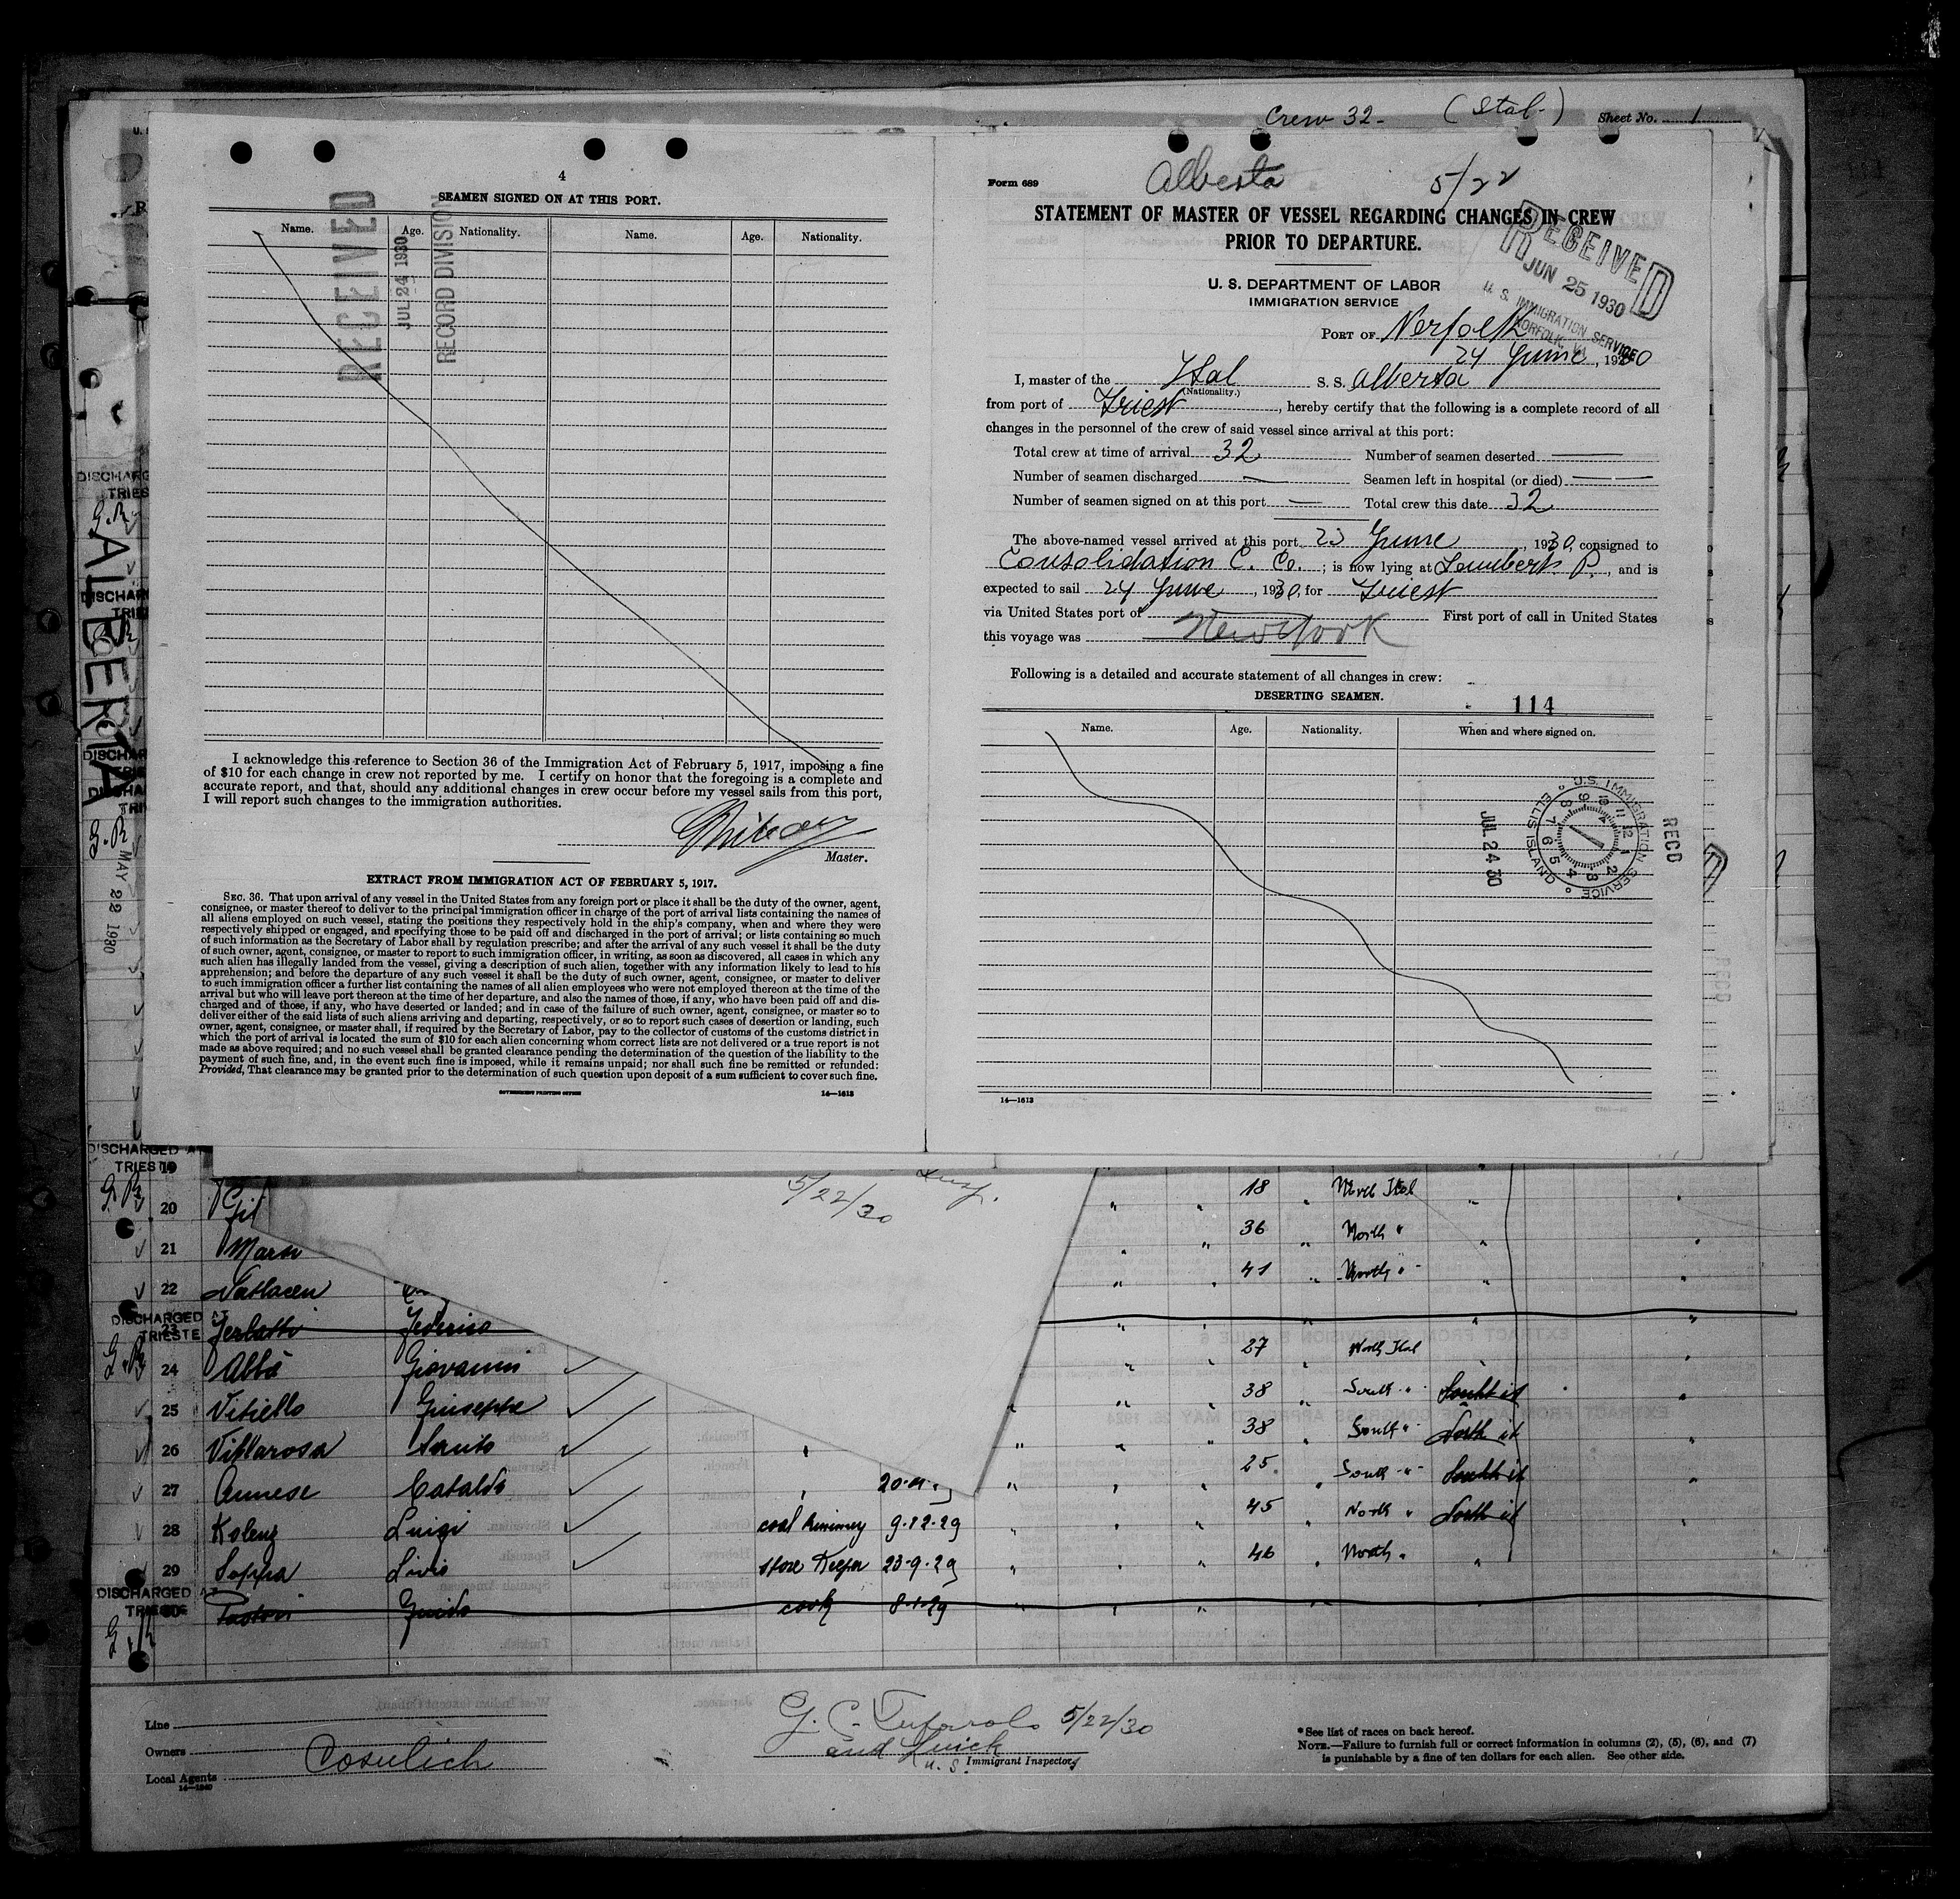 Crew 32- (Ital-) Sheet No. 1
4
SEAMEN SIGNED ON AT THIS PORT.
Name. Age. Nationality. Name. Age. Nationality.
RECEIVED
JUL 24 1930
RECORD DIVISION
I acknowledge this reference to Section 36 of the Immigration Act of February 5, 1917, imposing a fine
of $10 for each change in crew not reported by me. I certify on honor that the foregoing is a complete and
accurate report, and that, should any additional changes in crew occur before my vessel sails from this port,
I will report such changes to the immigration authorities.
Master.
EXTRACT FROM IMMIGRATION ACT OF FEBRUARY 5, 1917.
SEC. 36. That upon arrival of any vessel in the United States from any foreign port or place it shall be the duty of the owner, agent,
consignee, or master thereof to deliver to the principal immigration officer in charge of the port of arrival lists containing the names of
all aliens employed on such vessel, stating the positions they respectively hold in the ship's company, when and where they were
respectively shipped or engaged, and specifying those to be paid off and discharged in the port of arrival; or lists containing so much
of such information as the Secretary of Labor shall by regulation prescribe; and after the arrival of any such vessel it shall be the duty
of such owner, agent, consignee, or master to report to such immigration officer, in writing, as soon as discovered, all cases in which any
such alien has illegally landed from the vessel, giving a description of such alien, together with any information likely to lead to his
apprehension; and before the departure of any such vessel it shall be the duty of such owner, agent, consignee, or master to deliver
to such immigration officer a further list containing the names of all alien employees who were not employed thereon at the time of the
arrival but who will leave port thereon at the time of her departure, and also the names of those, if any, who have been paid off and dis-
charged and of those, if any, who have deserted or landed; and in case of the failure of such owner, agent, consignee, or master so to
deliver either of the said lists of such aliens arriving and departing, respectively, or so to report such cases of desertion or landing, such
owner, agent, consignee, or master shall, if required by the Secretary of Labor, pay to the collector of customs of the customs district in
which the port of arrival is located the sum of $10 for each alien concerning whom correct lists are not delivered or a true report is not
made as above required; and no such vessel shall be granted clearance pending the determination of the question of the liability to the
payment of such fine, and, in the event such fine is imposed, while it remains unpaid; nor shall such fine be remitted or refunded:
Provided, That clearance may be granted prior to the determination of such question upon deposit of a sum sufficient to cover such fine.
GOVERNMENT PRINTING OFFICE 14—1613
Form 689 Alberta 5/22
STATEMENT OF MASTER OF VESSEL REGARDING CHANGES IN CREW
PRIOR TO DEPARTURE.
RECEIVED
JUN 25 1930
U. S. IMMIGRATION SERVICE
NORFOLK, VA.
U. S. DEPARTMENT OF LABOR
IMMIGRATION SERVICE
PORT OF Norfolk
24 June, 1930
I, master of the Ital S. S. Alberta
(Nationality.)
from port of Triest, hereby certify that the following is a complete record of all
changes in the personnel of the crew of said vessel since arrival at this port:
Total crew at time of arrival 32 Number of seamen deserted
Number of seamen discharged Seamen left in hospital (or died)
Number of seamen signed on at this port Total crew this date 32
The above-named vessel arrived at this port 23 June, 1930, consigned to
Consolidation C. Co.; is now lying at Lamberts P., and is
expected to sail 24 June, 1930, for Triest
via United States port of First port of call in United States
this voyage was New York
Following is a detailed and accurate statement of all changes in crew:
DESERTING SEAMEN.
114
Name. Age. Nationality. When and where signed on.
U.S. IMMIGRATION SERVICE
ELLIS ISLAND
RECD
JUL 24 30
14—1613
ALBERTA
MAY 22 1930
5/22/30
DISCHARGED AT
TRIESTE
19
18 North Ital
20 Gil
36 North "
21
41 North "
22
DISCHARGED AT
TRIESTE
23 Federico
27 North Ital
24 Abbà Giovanni
38 South " South it
25 Vitiello Giuseppe
38 South " North it
26 Villarosa Santo
25 South " South it
27 Annese Cataldo
45 North " North it
28 Kolenz Luigi coal 9-12-29
46 North "
29 Soppa Livio store Keeper 23-9-29
DISCHARGED AT
TRIESTE
30 Pastori Guido cook 8-1-29
Line
Owners
Local Agents Cosulich
14—1240
G. C. 5/22/30
and Quick
U. S. Immigrant Inspectors
*See list of races on back hereof.
NOTE.—Failure to furnish full or correct information in columns (2), (5), (6), and (7)
is punishable by a fine of ten dollars for each alien. See other side.